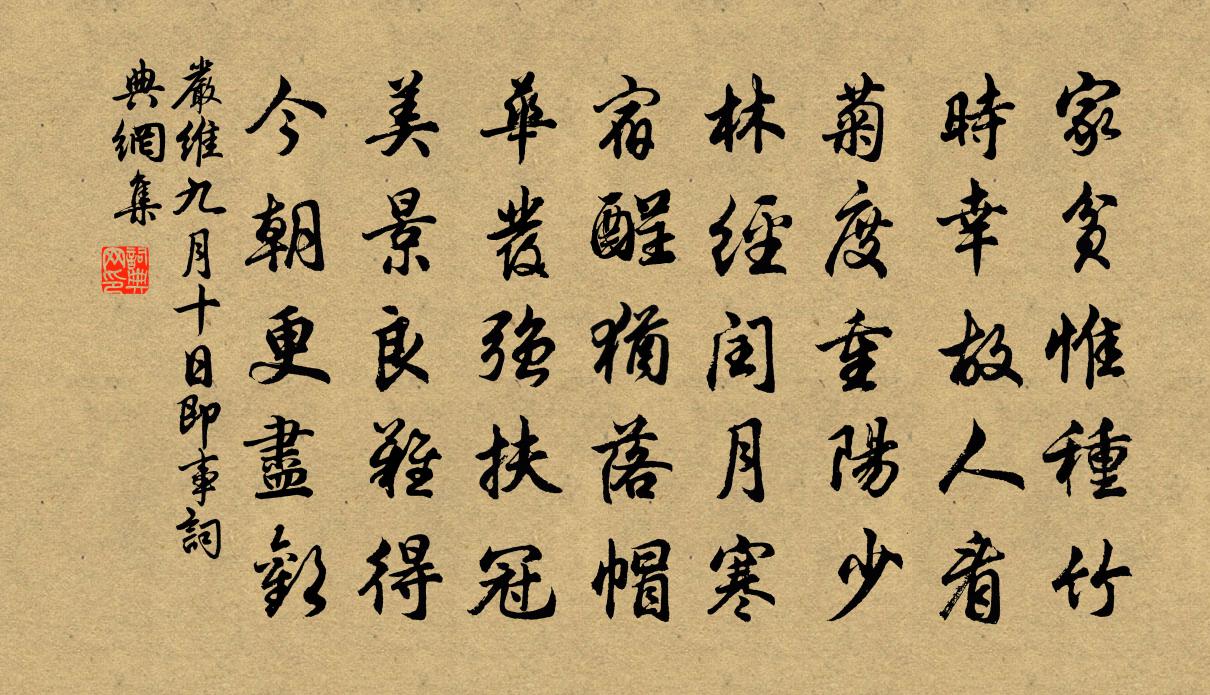 家貧惟種竹
時幸故人看
菊度重陽少
林經閏月寒
宿醒猶落帽
華發強扶冠
美景良難得
今朝更盡歡
嚴維九月十日即事詞
典網集
詞典
网印